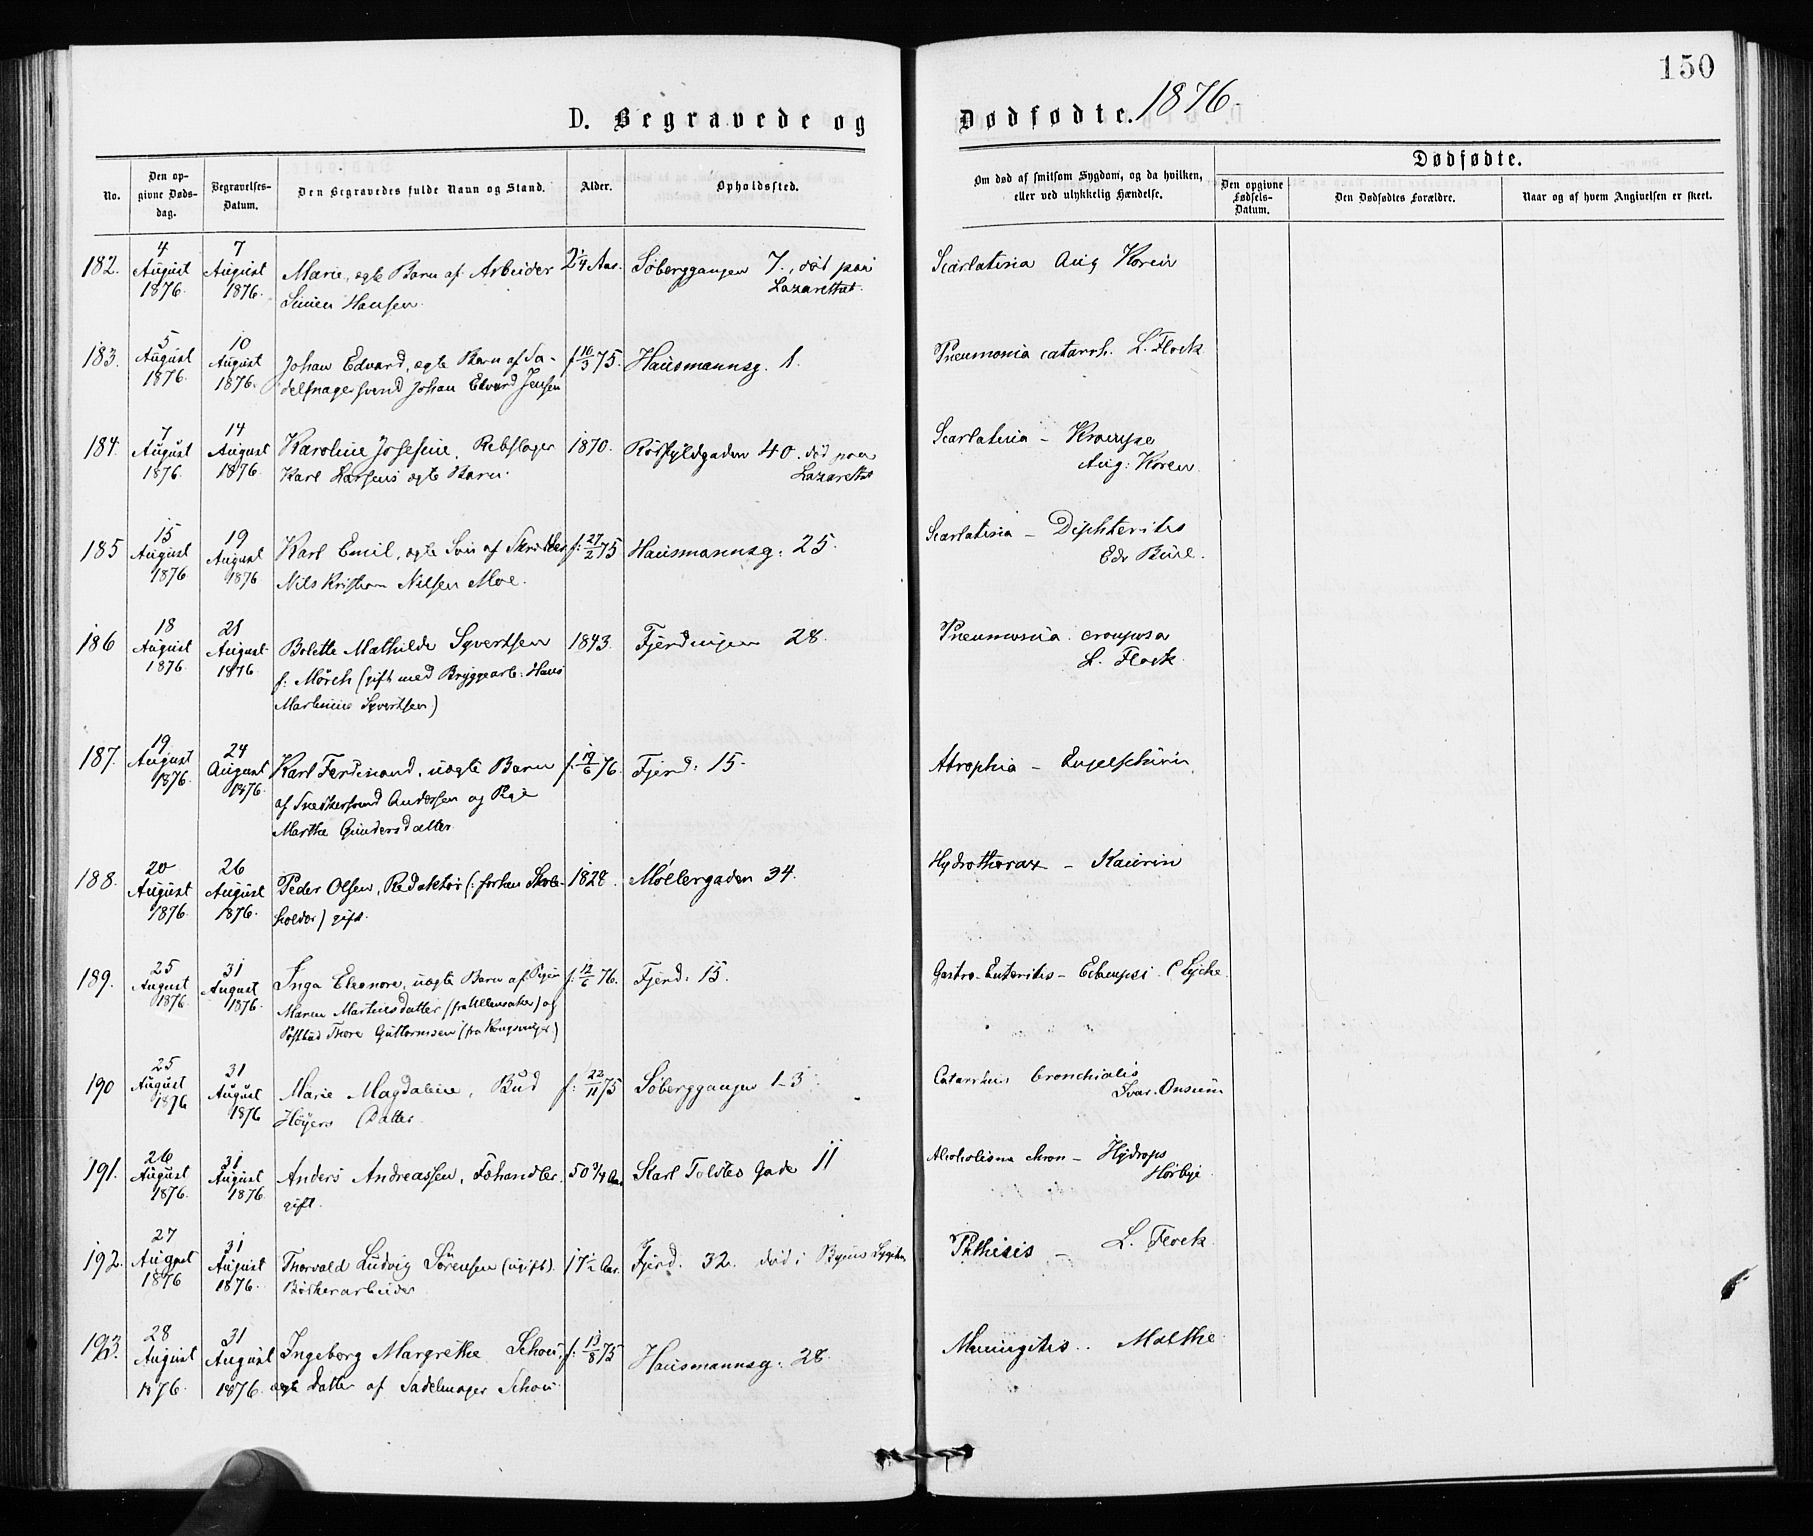 150
D. Begravede og Dødfødte. 1876.
No.
Den opgivne Dødsdag.
Begravelses-Datum.
Den Begravedes fulde Navn og Stand.
Alder.
Opholdssted.
Om død af smitsom Sygdom, og da hvilken, eller ved ulykkelig Hændelse.
Dødfødte.
Den opgivne Fødsels-Datum.
Den Dødfødtes Forældre.
Naar og af hvem Angivelsen er skeet.
182. 4 August 1876. 7 August 1876. Marie, ægte Barn af Arbeider 2 1/4 Aar. Søberggangen 7., død paa Scarlatina Aug Koren
Simen Hansen. Lazarettet.
183. 5 August 1876. 10 August 1876. Johan Edvard, ægte Barn af Sa- f 16/3 75. Hausmannsg. 1. Pneumonia catarrh. L. Flock
delmagersvend Johan Edvard Jensen
184. 7 August 1876. 14 August 1876. Karoline Josefine, Rebslager 1870. Røskyldgaden 40. død paa Scarlatina – Kroupe
Karl Hansens ægte Barn. Lazarettet Aug: Koren
185 15 August 1876 19 August 1876 Karl Emil, ægte Søn af f: 27/2 75 Hausmannsg: 25. Scarlatina – Diphterites
Nils Kristian Nilsen Moe. Edv Bull.
186 18 August 1876. 21 August 1876. Bolette Mathilde Syvertsen 1843. Fjerdingen 28. Pneumonia crouposa
f: Mörch (gift med Bryggearb: Hans L. Flock
Martinius Syvertsen)
187. 19 August 1876. 24 August 1876. Karl Ferdinand, uægte Barn f. 19/6 76. Fjerd: 15. Atrophia – Engelschiøn
af Snedkersvend Andersen og Pige
Marthe Gundersdatter.
188. 20 August 1876. 26 August 1876. Peder Olsen, Redaktør (: forhen Skole- 1828. Møllergaden 34. Hydrothorax – Kaurin
holder) gift.
189. 25 August 1876. 31 August 1876. Inga Eleonore, uægte Barn af Pigen f. 12/6 76. Fjerd: 15. Gastro-Enteritis – Eclampsi. C Lyche
Maren Martinsdatter (fra Ullensaker) og
Postbud Thore Guttormsen (fra Kongsvinger)
190 25 August 1876 31 August 1876 Marie Magdalene, Bud f: 22/11 75 Søberggangen 1-3 Catarrhus bronchialis
Höyers Datter. Ivar. Onsum
191. 26 August 1876. 31 August 1876. Anders Andreassen, Fæhandler. 50 3/4 Aar Karl Toldbo Gade 11 Alcoholisme chron – Hydrops
gift. Hørbye
192. 27 August 1876 31 August 1876. Thorvald Ludvig Sörensen (ugift). 17 1/2 Aar. Fjerd. 32. død i Byens Sygehus Phthisis – L. Flock.
Bödkerarbeider
193. 28 August 1876. 31 August 1876. Ingeborg Margrethe Schou, f. 13/8 75 Hausmannsg: 28. Meningitis.. Malthe
ægte Datter af Sadelmager Schou.